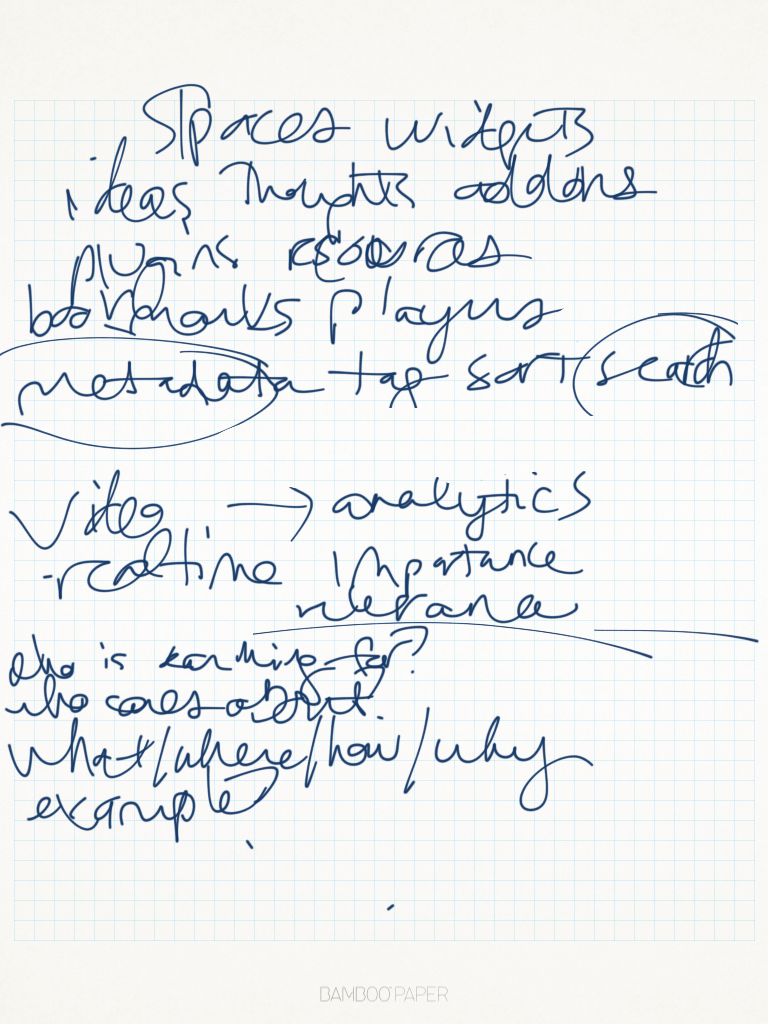 Spaces widgets
ideas Thoughts addons
plugins resources
bookmarks players
metadata tag sort search
Video → analytics
-realtime Importance
relevance
who is searching for?
who cares about
what/where/how/why
example?
BAMBOO PAPER